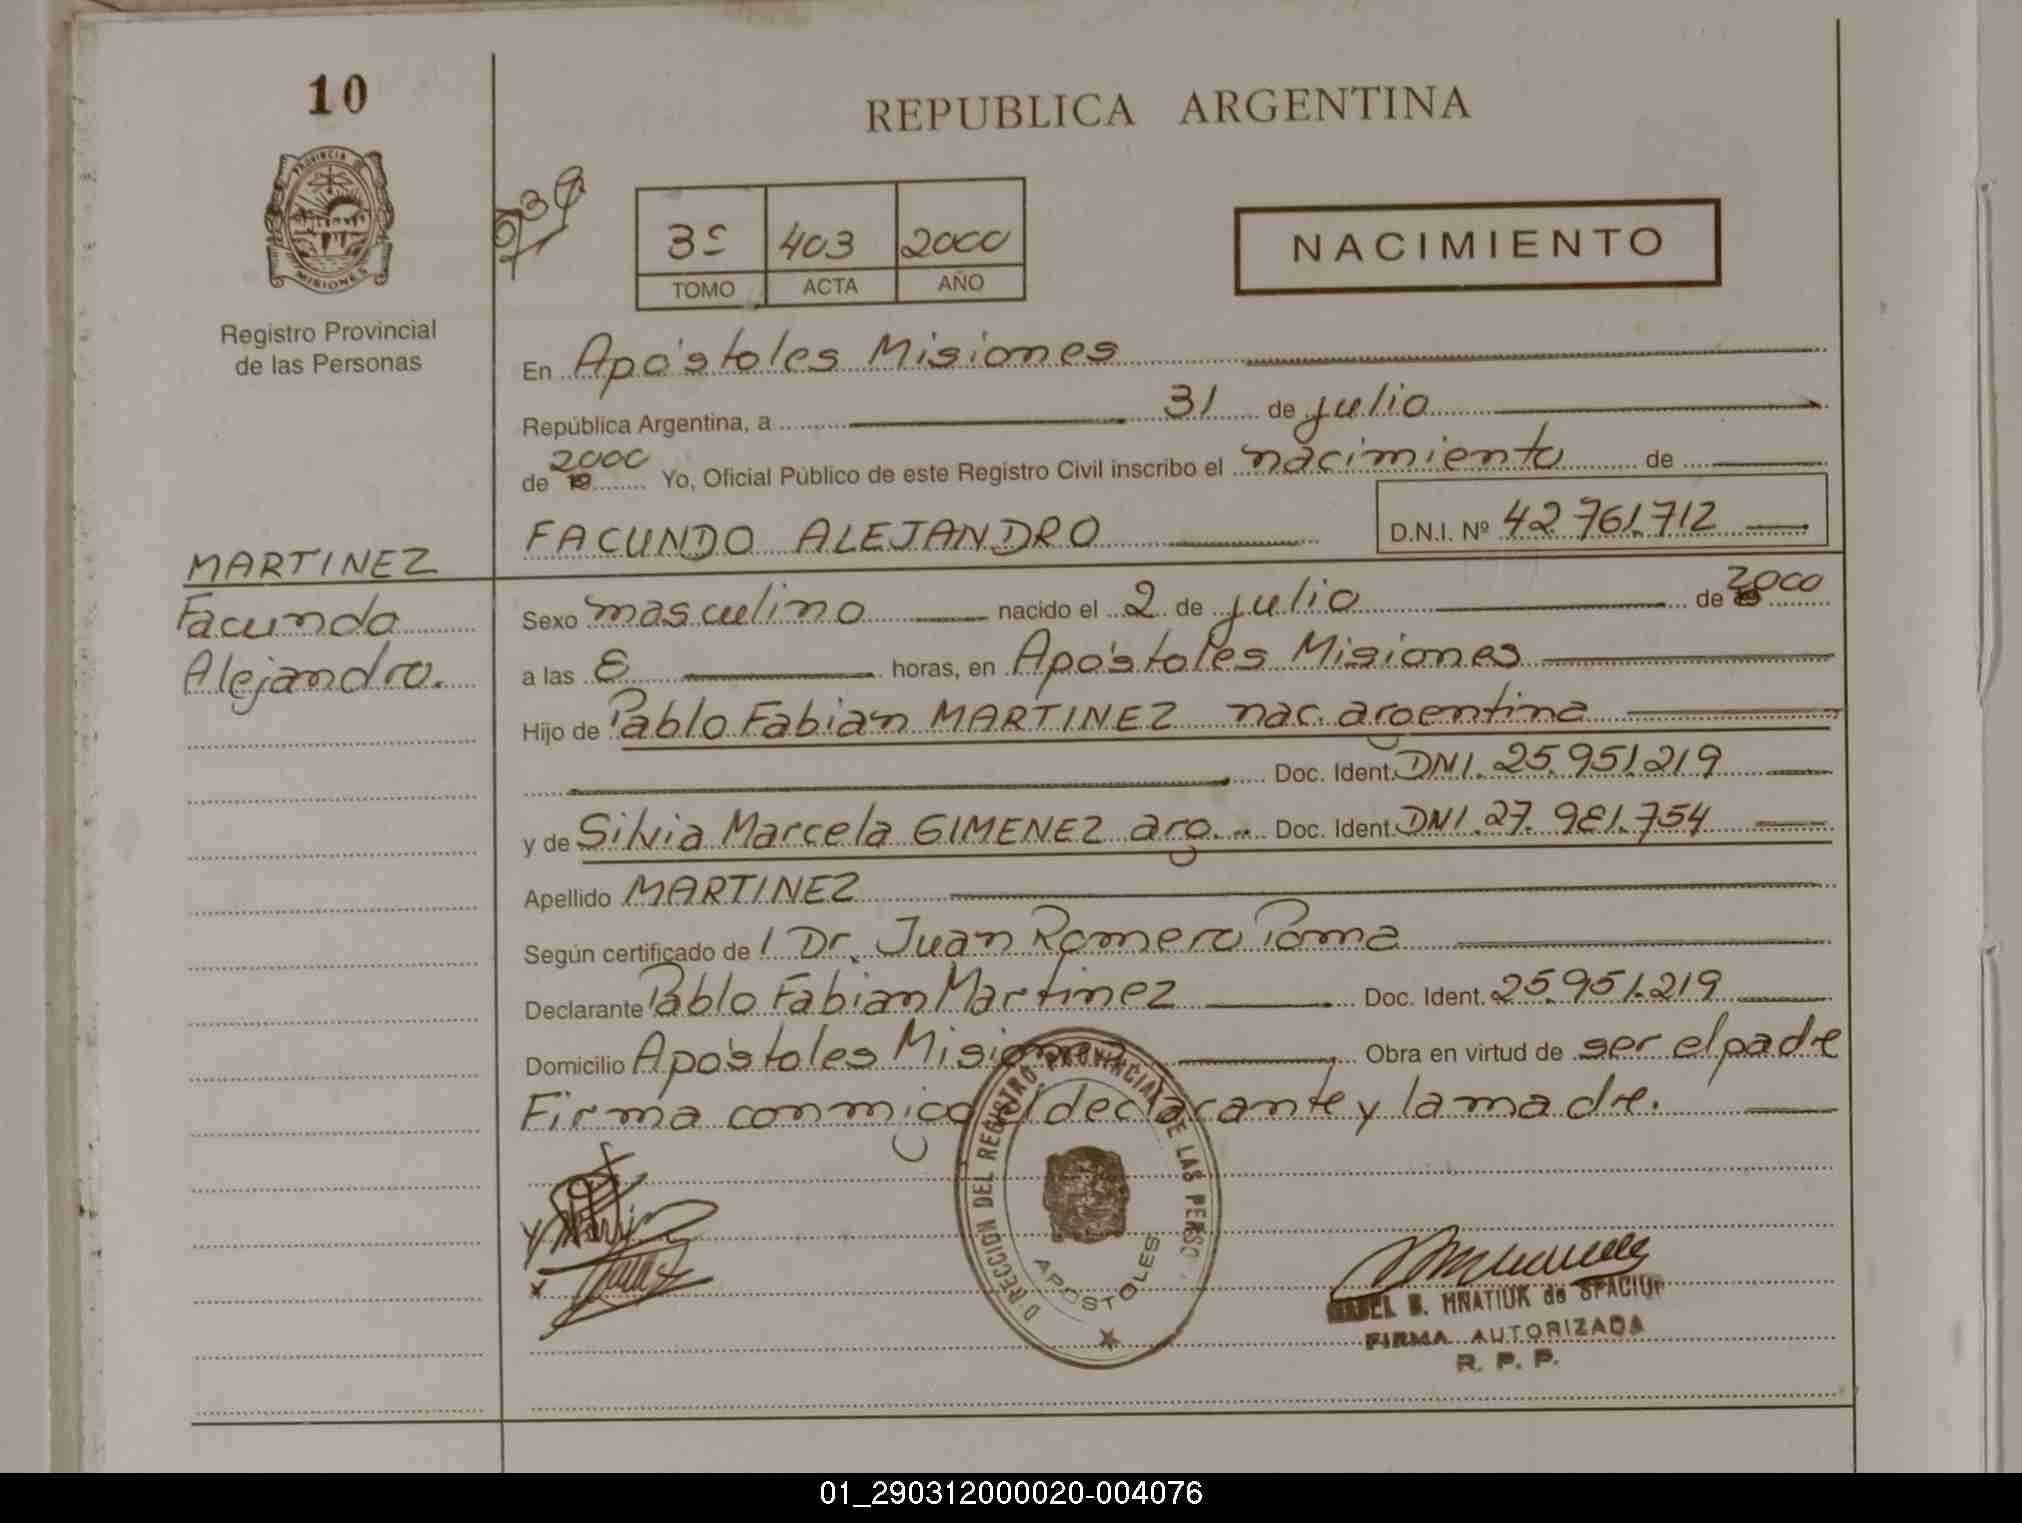 10
REPUBLICA ARGENTINA
PROVINCIA
MISIONES
Registro Provincial
de las Personas
3º 403 2000
TOMO ACTA AÑO
NACIMIENTO
En Apóstoles Misiones
República Argentina, a 31 de julio
de 2000 19 Yo, Oficial Público de este Registro Civil inscribo el nacimiento de
FACUNDO ALEJANDRO D.N.I. Nº 42.761.712
MARTINEZ
Facundo
Alejandro.
Sexo masculino nacido el 2 de julio de 2000
a las 8 horas, en Apóstoles Misiones
Hijo de Pablo Fabián MARTINEZ nac. argentina
Doc. Ident. DNI. 25.951.219
y de Silvia Marcela GIMENEZ arg. Doc. Ident. DNI. 27.981.754
Apellido MARTINEZ
Según certificado de l Dr. Juan Romero Poma
Declarante Pablo Fabian Martinez Doc. Ident. 25.951.219
Domicilio Apóstoles Misiones Obra en virtud de ser el padre
Firma conmigo el declarante y la madre.
DIRECCION DEL REGISTRO PROVINCIAL DE LAS PERSO
APOSTOLES
B. HNATIUK de SPACIUK
FIRMA AUTORIZADA
R. P. P.
01_290312000020-004076